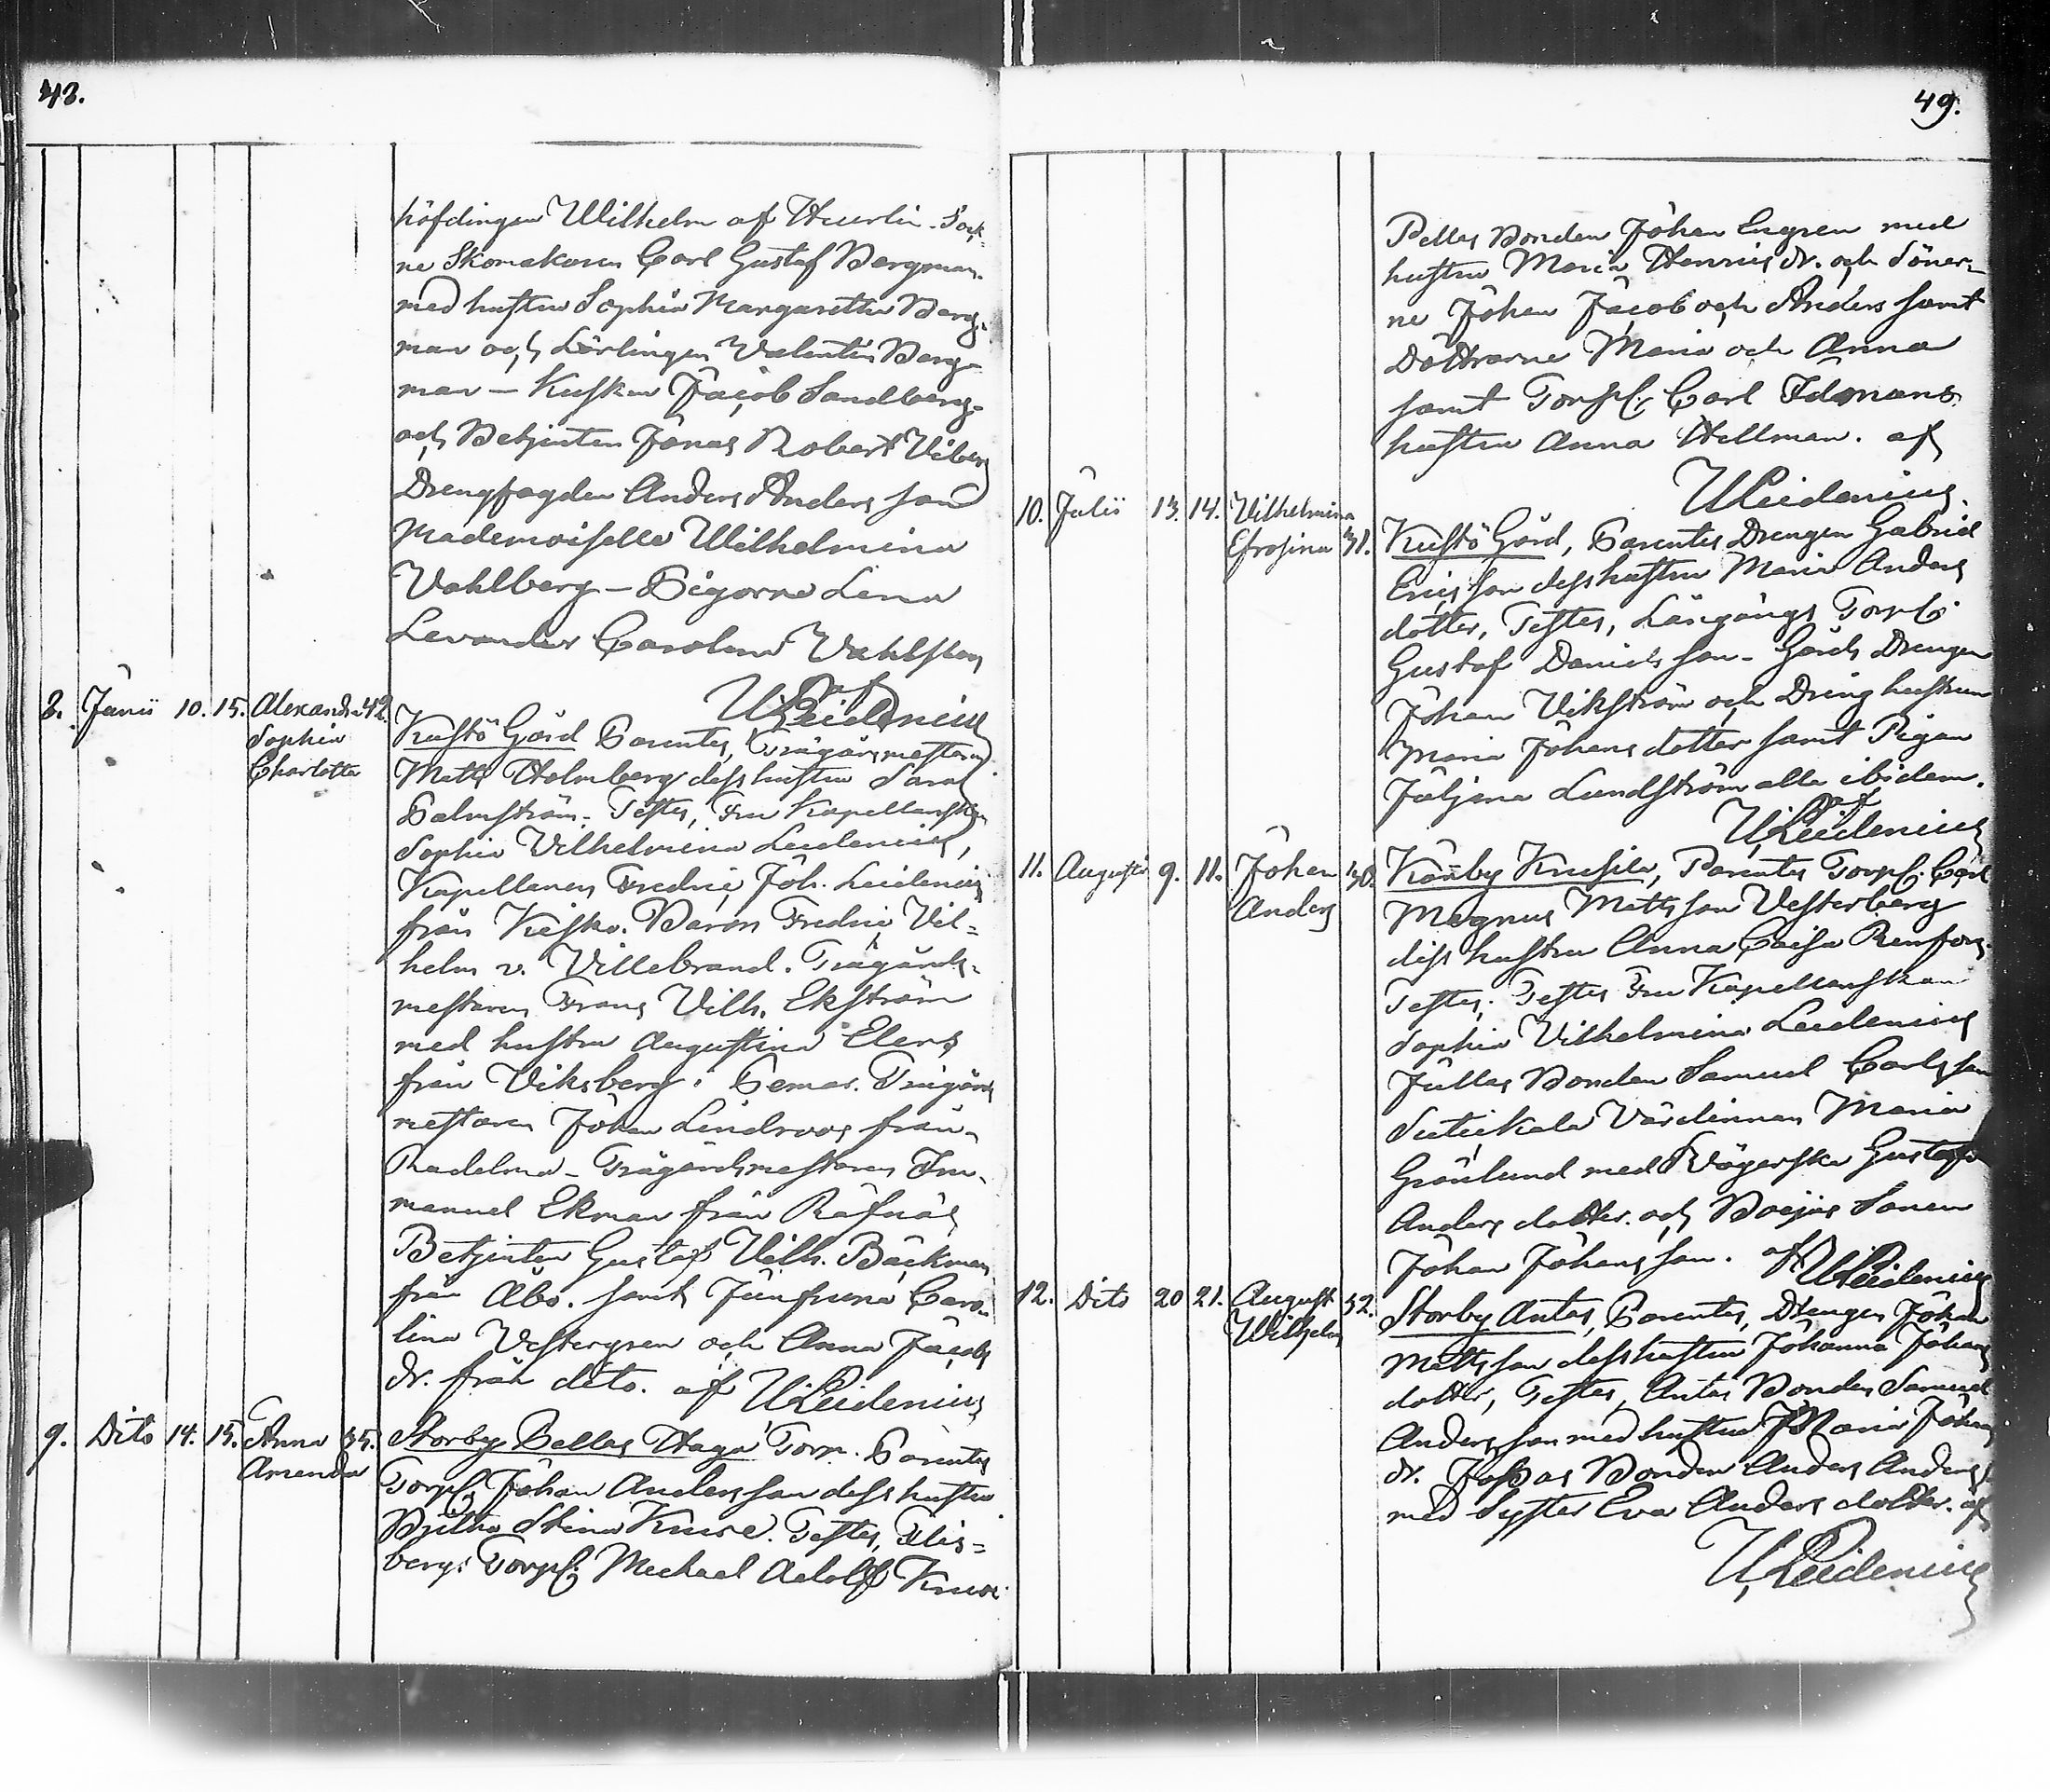 48.
höfdingen Wilhelm af Heurlin. Sock-
ne Skomakaren Carl Gustaf Bergman
med hustru Sophia Margaretha Berg-
man och Lärlingen Valentin Berg-
man – Kusken Jacob Sandberg
och Betjenten Jonas Robert Viberg
Drengfogden Anders Andersson
Mademoiselle Wilhelmina
Vahlberg – Pigorne Lena
Levander Carolina Vahlsten
af
Leidenius
8. Junii 10. 15. Alexandra 42. Kustö Gård Parentes, Trägårsmestaren
Sophia Matts Holmberg dess hustru Sara
Charlotta Palmström. Testes, Fru Kapellanskan
Sophia Vilhelmina Leidenius,
Kapellanen Fredric Joh. Leidenius
från Kisko. Baron Fredric Vil-
helm v. Villebrand. Trägårds-
mestaren Frans Vilh. Ekström
med hustru Augustina Elers
från Viksberg i Pemar. Trägårds
mestaren Johan Lindroos från
Radelma – Trägårdsmestaren Im-
manuel Ekman från Rafnäs
Betjenten Gustaf Vilh. Bäckman
från Åbo. samt Jungfruna Caro-
lina Vestergren och Anna Jacobs
dr. från dito. af Leidenius
9. Dito 14. 15. Anna 35. Storby Pellas Haga Torp. Parentes
Amanda Torp. Johan Andersson dess hustru
Stina Kruse. Testes, Flis-
bergs Torp. Michael Adolf Kruse
49.
Pellas Bonden Johan Engren med
hustru Maria Henrics dr. och Söner-
ne Johan Jacob och Anders samt
Döttrarne Maria och Anna
samt Torp. Carl Idmans
hustru Anna Hellman. af
Leidenius.
10. Julii 13. 14. Vilhelmina
Efrosina 31. Kustö Gård, Parentes Drengen Gabriel
Ericsson dess hustru Maria Anders
dotter, Testes, Långängs Torp.
Gustaf Danielsson – Gårds Drengen
Johan Vikström och Dräng hustrun
Maria Johans dotter samt Pigan
Juljana Lundström alla ibidem.
af
Leidenius
11. Augusti 9. 11. Johan 30. Kärby Krusila, Parentes Torp. Carl
Anders Magnus Mattsson Vesterberg
dess hustru Anna Caisa Renfors.
Testes. Testes Fru Kapellanskan
Sophia Vilhelmina Leidenius
Jullas Bonden Samuel Carlsson
Värdinnan Maria
Grönlund med Svägerska Gustafva
Anders dotter. och Böijas Sonen
Johan Johansson. af Leidenius
12. Dito 20 21. August 32. Storby Antas, Parentes, Drengen Johan
Wilhelm Mattsson dess hustru Johanna Johans
dotter, Testes, Antas Bonden Samuel
Andersson med hustru Maria Johans
dr. Bonden Anders Anders
med Syster Eva Anders dotter. af
Leidenius